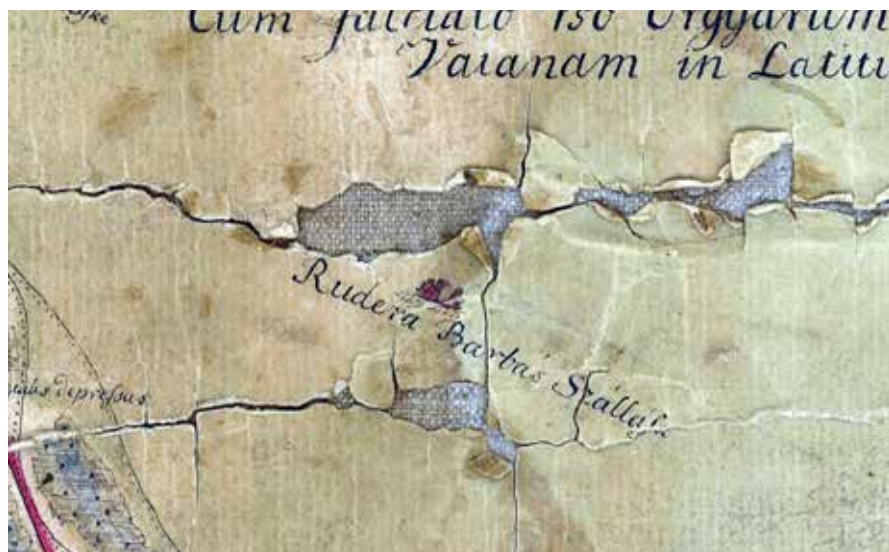 Cum falcifato 150 Orgyarum
Vaianam in Latitu
Rudera Barbás Szállás
depressus